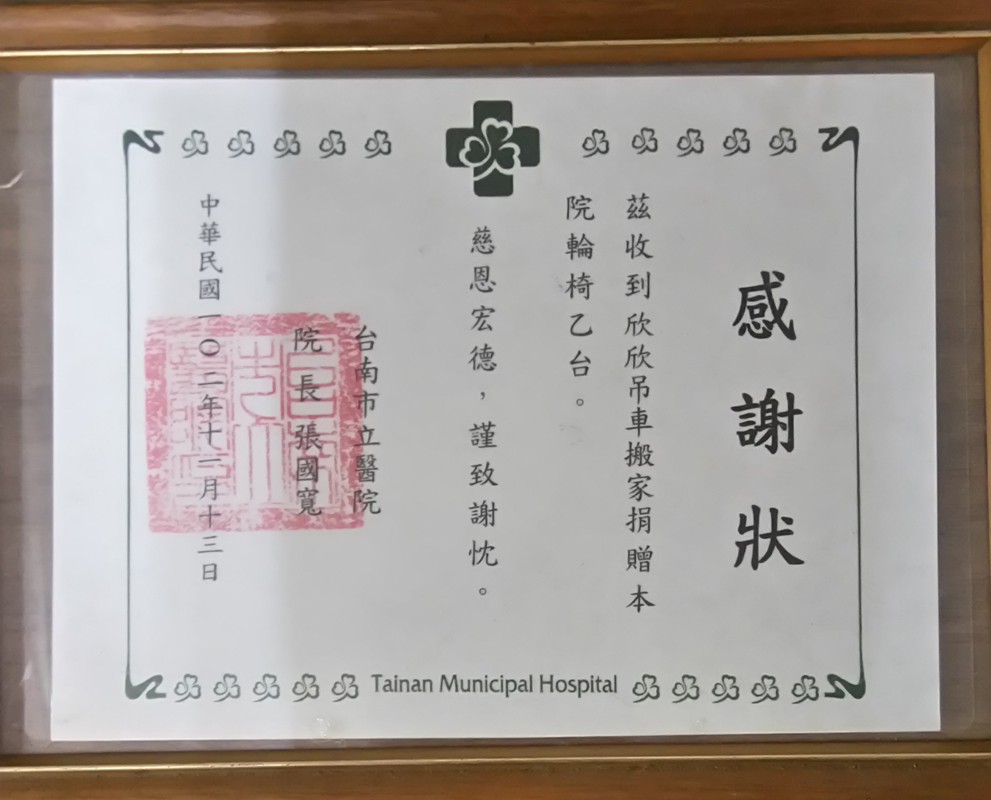 感謝狀
茲收到欣欣吊車搬家捐贈本
院輪椅乙台。
慈恩宏德，謹致謝忱。
台南市立醫院
院長張國寬
中華民國一〇二年十一月十三日
Tainan Municipal Hospital